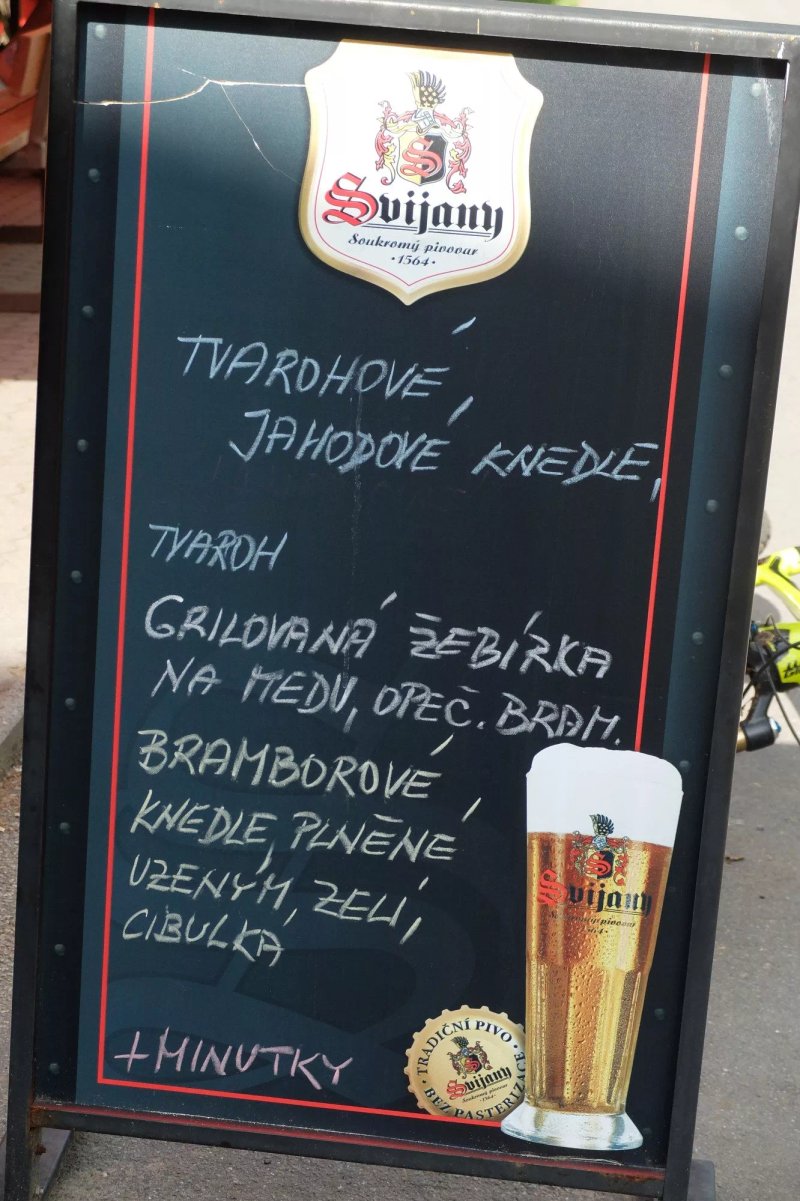 S
Svijany
Soukromý pivovar
· 1564 ·
TVAROHOVÉ,
JAHODOVÉ KNEDLE,
TVAROH
GRILOVANÁ ŽEBÍRKA
NA MEDU, OPEČ. BRAM.
BRAMBOROVÉ
KNEDLE, PLNĚNÉ
UZENÝM, ZELÍ,
CIBULKA
+ MINUTKY
S
Svijany
Soukromý pivovar
1564
· TRADIČNÍ PIVO ·
BEZ PASTERIZACE
Svijany
Soukromý pivovar
· 1564 ·